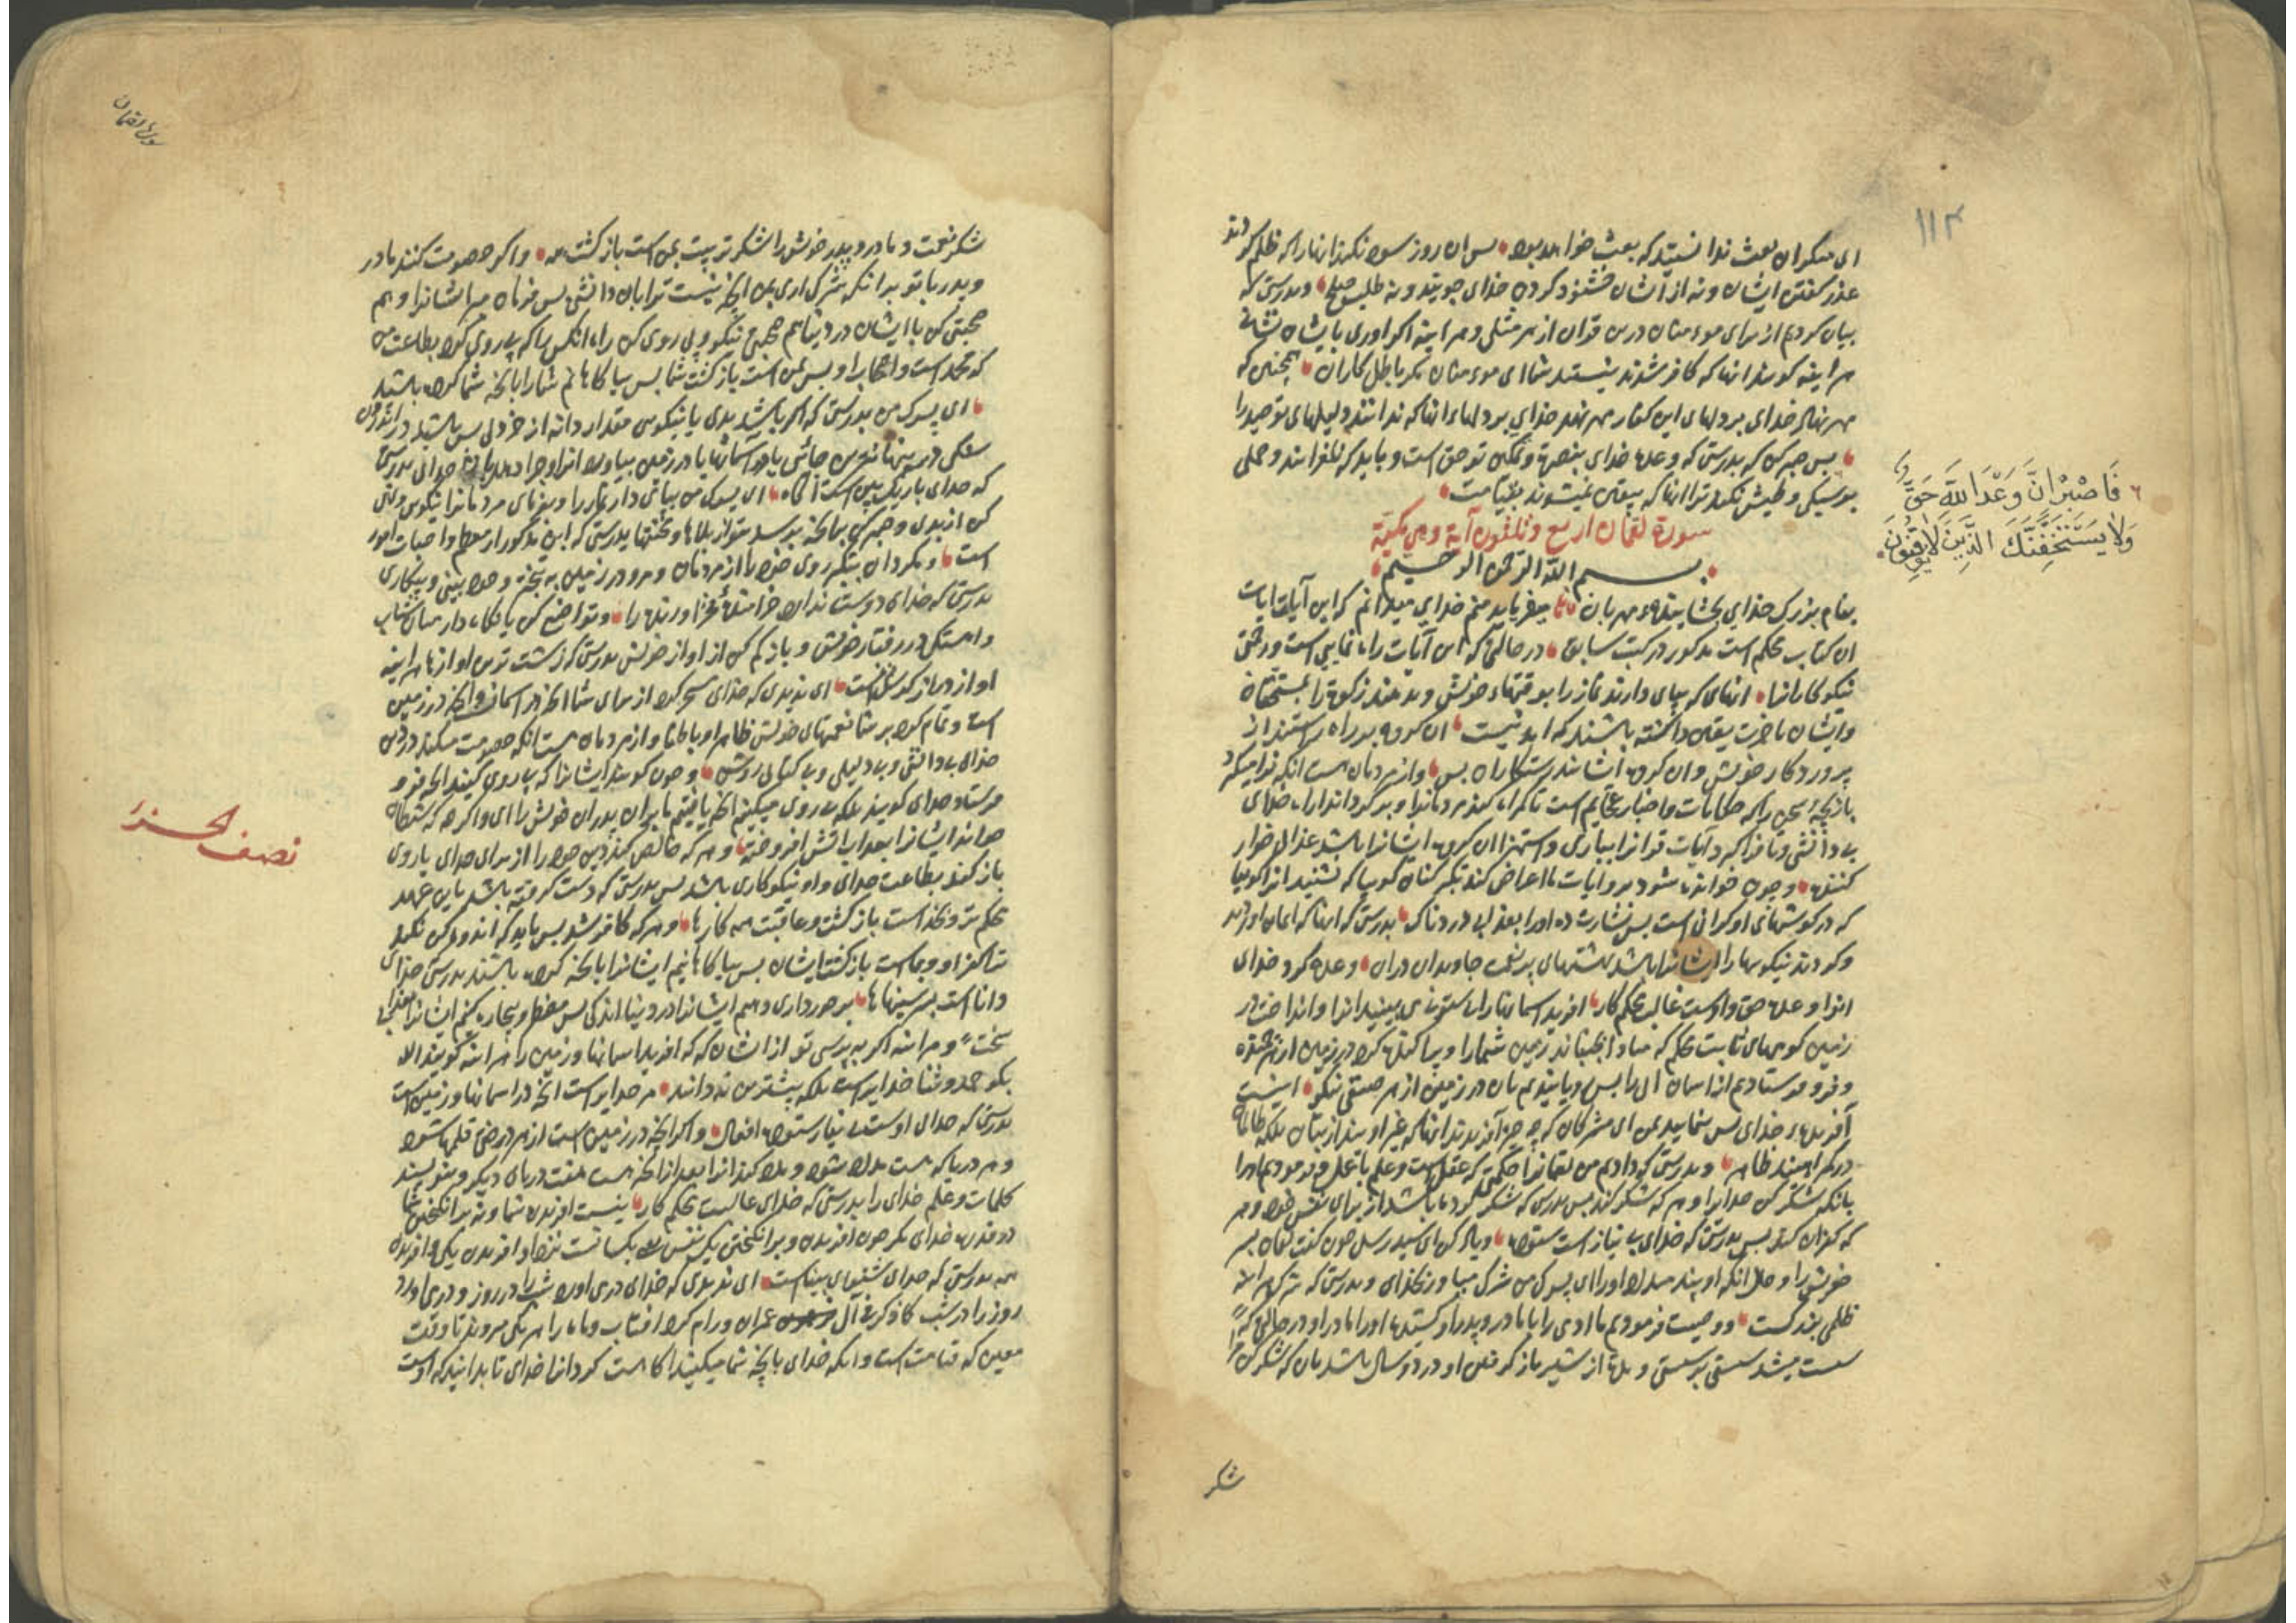 ۱۱۴
ای منکران بعث ندانستید که بعث خواهد بود پس ان روز سود نکند انها را که ظلم کردند
عذر گفتن ایشان و نه از ایشان خشنود کردن خدای جویند و نه طلب صلح و بدرستی که
بیان کردیم از برای مومنان درین قران از هر مثلی و هر اینه اکر اوری بایشان نشانی
هر اینه کویند انها که کافر شدند نیستید شما ای مومنان مکر باطل کاران همچنین که
مهر نهاد خدای بر دلهای این کفار مهر نهد خدای بر دلهاء انها که ندانند دلیلهای توحید را
پس صبر کن که بدرستی که وعده خدای بنصرة و تمکین تو حق است و باید که نلغزانند و حملی
بر سبکی و طیش نکند ترا انها که بیقین نمیشوند بقیامت
فَاصْبِرْ اِنَّ وَعْدَ اللهِ حَقٌّ
وَلَا يَسْتَخِفَّنَّكَ الَّذِينَ لَا يُوقِنُونَ
سورة لقمان اربع و ثلثون آية و هی مکیة
بسم الله الرحمن الرحیم
بنام بزرک خدای بخشایندهء مهربان میفرماید منم خدای میدانم که این آیات ایات
ان کتاب محکم است مذکور در کتب سابق در حالتی که این آیات راه نمایی است و رحمتی
نیکو کارانرا انهای که بپای دارند نماز را بوقتهاء خویش و بدهند زکوة را بمستحقان
و ایشان باخرت یقین داشته باشند که ابدیست ان کروه بر راه راستند از
پروردکار خویش و ان کروه ایشانند رستکاران بس و از مردمان هست انکه فرا میکیرد
بازیچهٔ سخن را که حکایات و اخبار عجایم است تا کمراه کند مردمانرا و بر کرداند از راه خدای
بی دانشی و تا فرا کیرد آیات قرانرا ببازی و استهزا ان کروه ایشانرا باشد عذابی خوار
کننده و چون خوانده شود برو ایات ما اعراض کند تکبر کنان کویا که نشنید انرا کوییا
که در کوشهای او کرانی است پس بشارت ده اورا بعذابی دردناک بدرستی که انها که ایمان اوردند
و کردند نیکویها را ایشانرا باشد بهشتهای پر نعمت جاویدان دران وعده کرد خدای
انرا وعده حق و اوست غالب محکم کار افرید اسمانها را بی ستونی می بینید انرا و انداخت در
زمین کوههای ثابت محکم که مبادا بجنباند زمین شما را و پراکنده کرد در زمین از هر جنبنده
و فرو فرستادیم از اسمان آبی را پس رویانیدیم بان در زمین از هر صنفی نیکو اینست
آفریدهء خدای پس بنمایید بمن ای مشرکان که چه چیز آفریدند انها که غیر اویند از بتان بلکه ظالمان
در کمراهیند ظاهر و بدرستی که دادیم من لقمانرا حکمتی که عقل است و علم با عمل و فرمودیم اورا
بانکه شکر کن خدایرا و هر که شکر کند پس بدرستی که شکر کرده باشد از برای نفس خود و هر
که کفران کند پس بدرستی که خدای بی نیاز است ستوده و یاد کن ای سید رسل چون کفت لقمان پسر
خویش را و حال انکه او پند میداد اورا ای پسرک من شرک میاور بخدای و بدرستی که شرک هر اینه
ظلمی بزرکست و وصیت فرمودیم ما ادمی را با مادر و پدر او کشیده اورا مادر او در حالتی که
سست میشد سستی بر سستی و بود از شیر باز کرفتن او در دو سال باشد بان که شکر کن مرا
شکر
سورة لقمان
شکر نعمت و مادر و پدر خویش را شکر تربیت بمن است بازکشت همه و اکر خصومت کنند مادر
و پدر با تو بر انکه شرک اری بمن انچه نیست ترا بان دانشی پس فرمان مبر ایشانرا و هم
صحبتی کن با ایشان در دنیا هم صحبتی نیکو و پی روی کن راه انکس را که پی روی کرد بطاعت من
که محمد است و اصحاب او پس بمن است بازکشت شما پس بیاکاهانم شما را بانچه شما کرده باشید
ای پسرک من بدرستی که اکر باشد بدی یا نیکویی مقدار دانه از خردل پس باشد در اندرون
سنکی در پنهانترین جائی یا در آسمانها یا در زمین بیاورد انرا و جزا دهد بان خدای بدرستی
که خدای باریک بین است آکاه ای پسرک من بپای دار نماز را و بفرمای مردمانرا بنکویی و نهی
کن از بدی و صبر کن بر انچه برسد بتو از بلاها و محنتها بدرستی که این مذکور از معظم واجبات امور
است و مکردان بتکبر روی خود را از مردمان و مرو در زمین به تبختر و خود بینی و بیکاری
بدرستی که خدای دوست ندارد خرامندهٔ فخر اورنده را و تواضع کن یا نکاه دار میان شتاب
و اهستکی در رفتار خویش و باز کم کن از اواز خویش بدرستی که زشت ترین اوازها هر اینه
اواز دراز کوش است ای ندیدی که خدای مسخر کرد از برای شما انچه در اسمان و انچه در زمین
است و تمام کرد بر شما نعمتهای خویش ظاهر او باطنا و از مردمان هست انکه خصومت میکند در دین
خدای بی دانش و بی دلیلی و بی کتابی روشن و چون کویند ایشانرا که پی روی کنید انچه فرو
فرستاد خدای کویند بلکه پی روی میکنیم انچه یافتیم ما بران پدران خویش را ای و اکر چه که شیطان
خواند ایشانرا بعذاب آتش افروخته و هر که خالص کند دین خود را از برای خدای یا روی
نصف الحزب
باز کند بطاعت خدای و او نیکوکاری باشد پس بدرستی که دست کرفته باشد باین عهد
محکم تر و بخداست بازکشت و عاقبت همه کارها و هر که کافر شد پس باید که اندوهکین نکند
ترا کفر او و بماست بازکشت ایشان پس بیاکاهانیم ایشانرا بانچه کرده باشند بدرستی خدای
داناست بسر سینها بر خورداری دهیم ایشانرا در دنیا اندکی پس مضطر و بیچاره کنیم ایشانرا بعذاب
سخت و هر اینه اکر بپرسی تو از ایشان که که افرید اسمانها و زمین را هر اینه کویند الله
بکو حمد و ثنا خدایراست بلکه بیشترین نه دانند مر خدایراست انچه در اسمانها و زمین است
بدرستی که خدای اوست بی نیاز ستوده افعال و اکر انچه در زمین است از هر درختی قلمها شود
و هر دریا که هست مداد شود و مداد کند انرا بعد از انچه هست هفت دریای دیکر و بنویسند
کلمات و علم خدای را بدرستی که خدای غالبست محکم کار نیست افریدن شما و نه بر انکیختن شما
در قدرة خدای مکر چون افریدن و بر انکیختن یک نفس که یکسانست نزد او افریدن یکی و افریدن
همه بدرستی که خدای شنوای بیناست ای ندیدی که خدای در می اورد شب را در روز و در می اورد
روز را در شب کما ذکر فی آل عمران و رام کرد افتاب و ماه را هر یکی میروند تا وقت
معین که قیامت است و انکه خدای بانچه شما میکنید آکاست کردانرا خدای تا بدانید که اوست